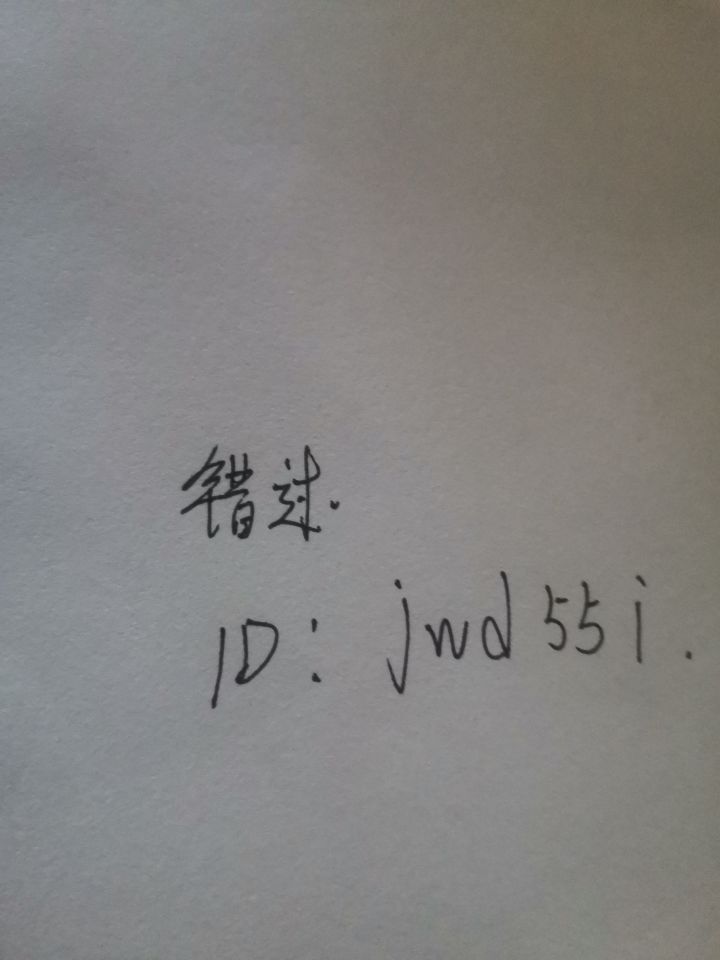 错过.
ID: jwd55i.